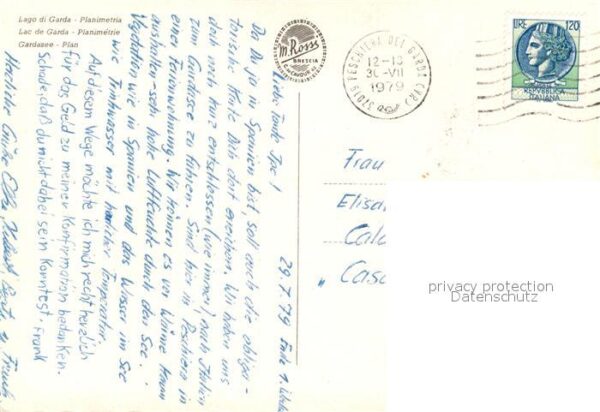 Lago di Garda - Planimetria
Lac de Garda - Planimétrie
Gardasee - Plan
m. Ross
BRESCIA
37019 PESCHIERA DEL GARDA (VR)
12-13
30-VII
1979
LIRE 120
REPVBBLICA
ITALIANA
29.7.79
Liebe Tante Ilse!
Da Du ja in Spanien bist, soll auch die obliga-
torische Karte Dich dort erreichen. Wir haben uns
doch kurz entschlossen (wie immer) nach Italien
zum Gardasee zu fahren. Sind hier in Peschiera in
einer Ferienwohnung. Wir können es vor Wärme kaum
aushalten - sehr hohe Luftfeuchte durch den See.
Vegetation wie in Spanien und das Wasser im See
wie Trinkwasser mit herrlicher Temperatur.
Auf diesem Wege möchte ich mich recht herzlich
für das Geld zu meiner Konfirmation bedanken.
Schade, daß du nicht dabei sein konntest. Frank
Herzliche Grüße
Frau
Elisa
Cala
Casa
privacy protection
Datenschutz